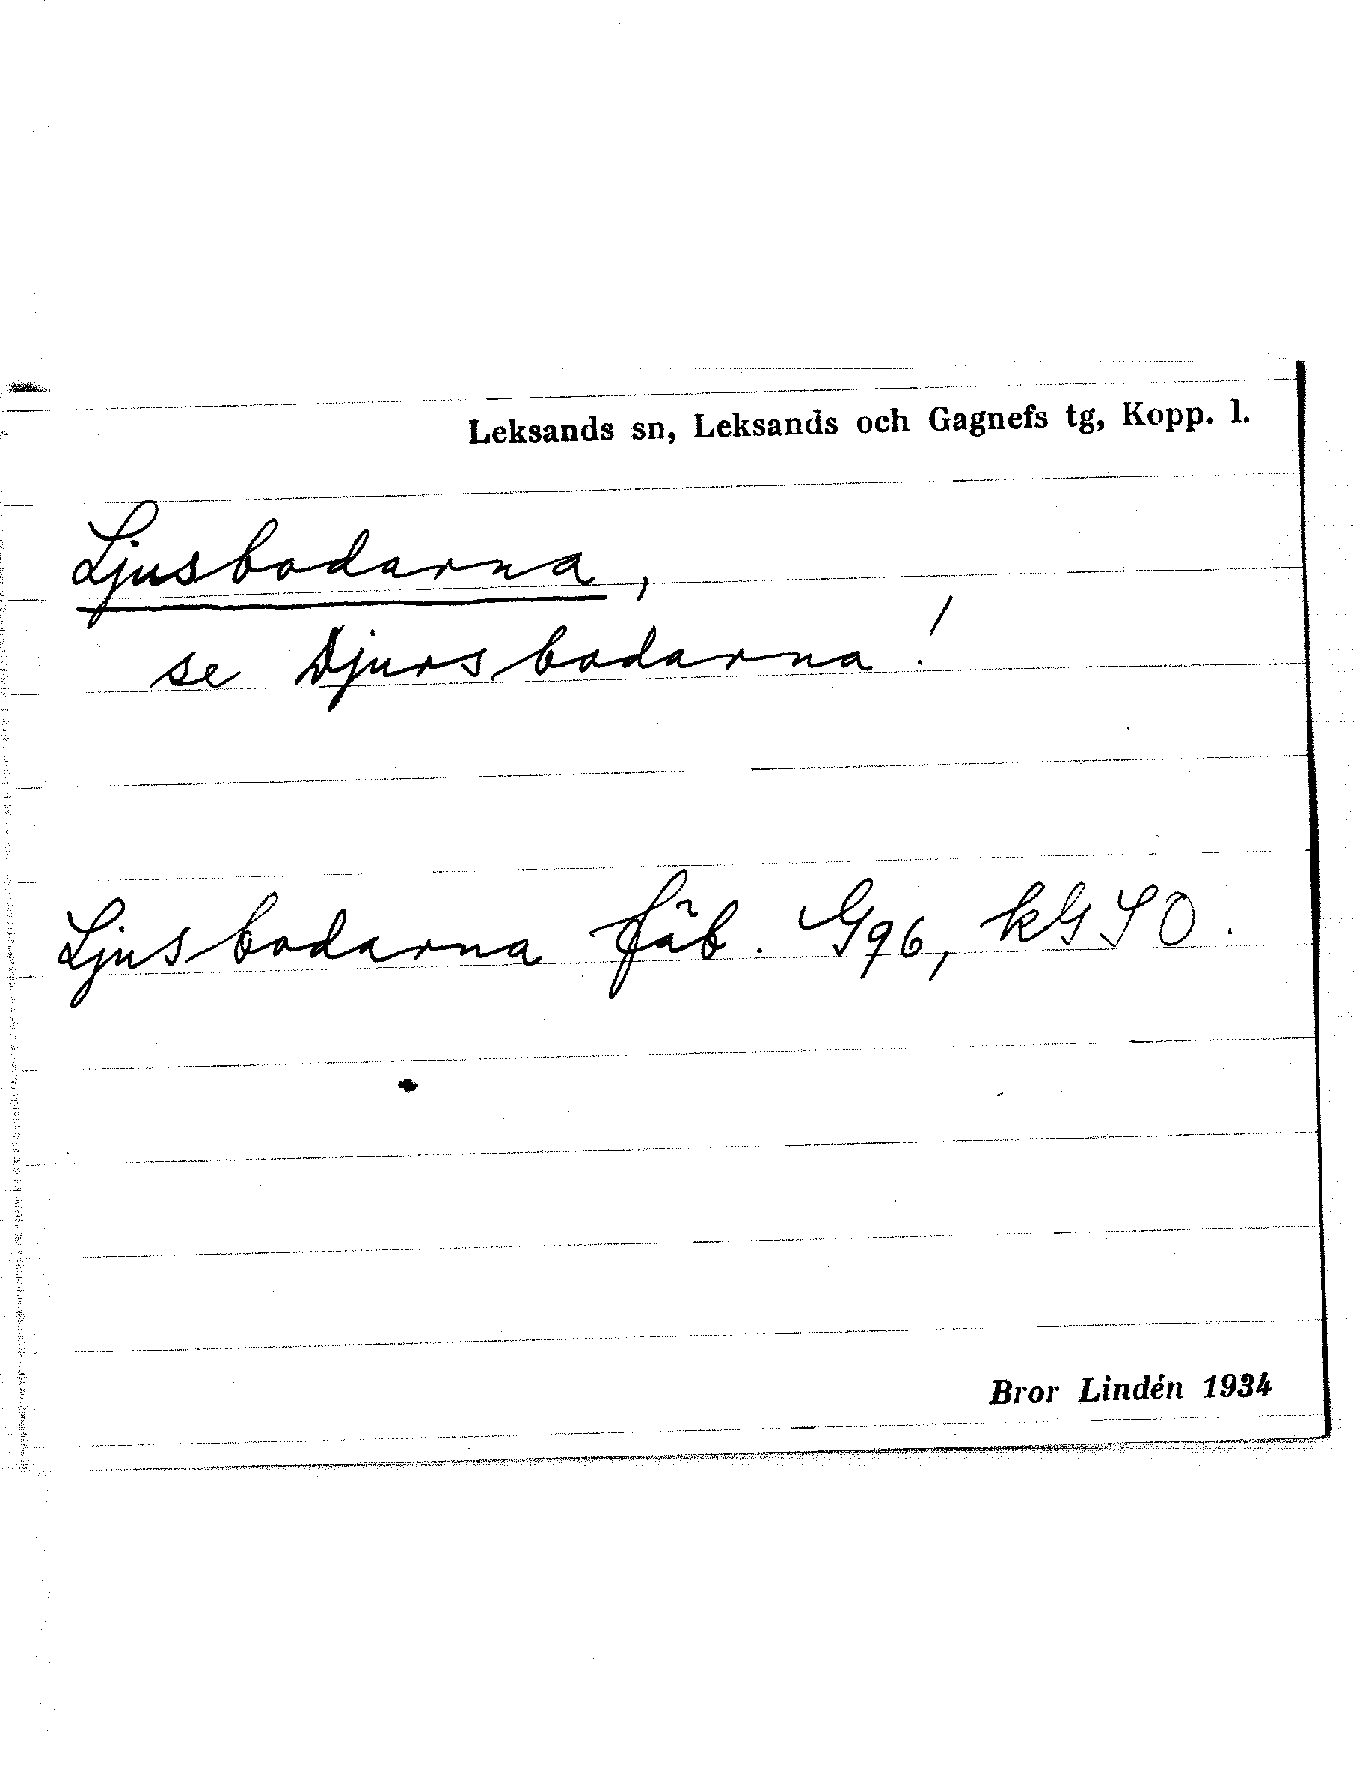 Leksands sn, Leksands och Gagnefs tg, Kopp. l.
Ljusbodarna,
se Djursbodarna!
Ljusbodarna fäb. G96, kG SO.
Bror Lindén 1934